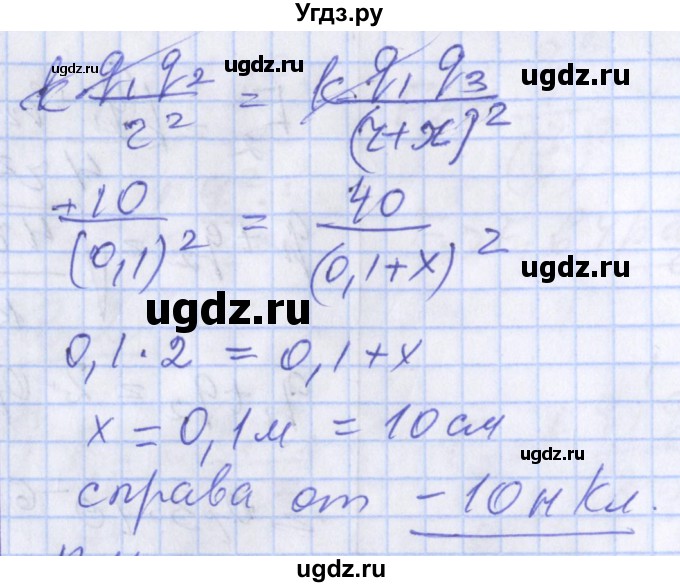 Угдз.ру
ugdz.ru ugdz.ru ugdz.ru
k q₁ q₂ / r² = k q₁ q₃ / (r+x)²
+10 / (0,1)² = 40 / (0,1+x)²
ugdz.ru ugdz.ru
0,1·2 = 0,1+x
x = 0,1м = 10см
ugdz.ru
справа от -10нКл.
ugdz.ru ugdz.ru ugdz.ru